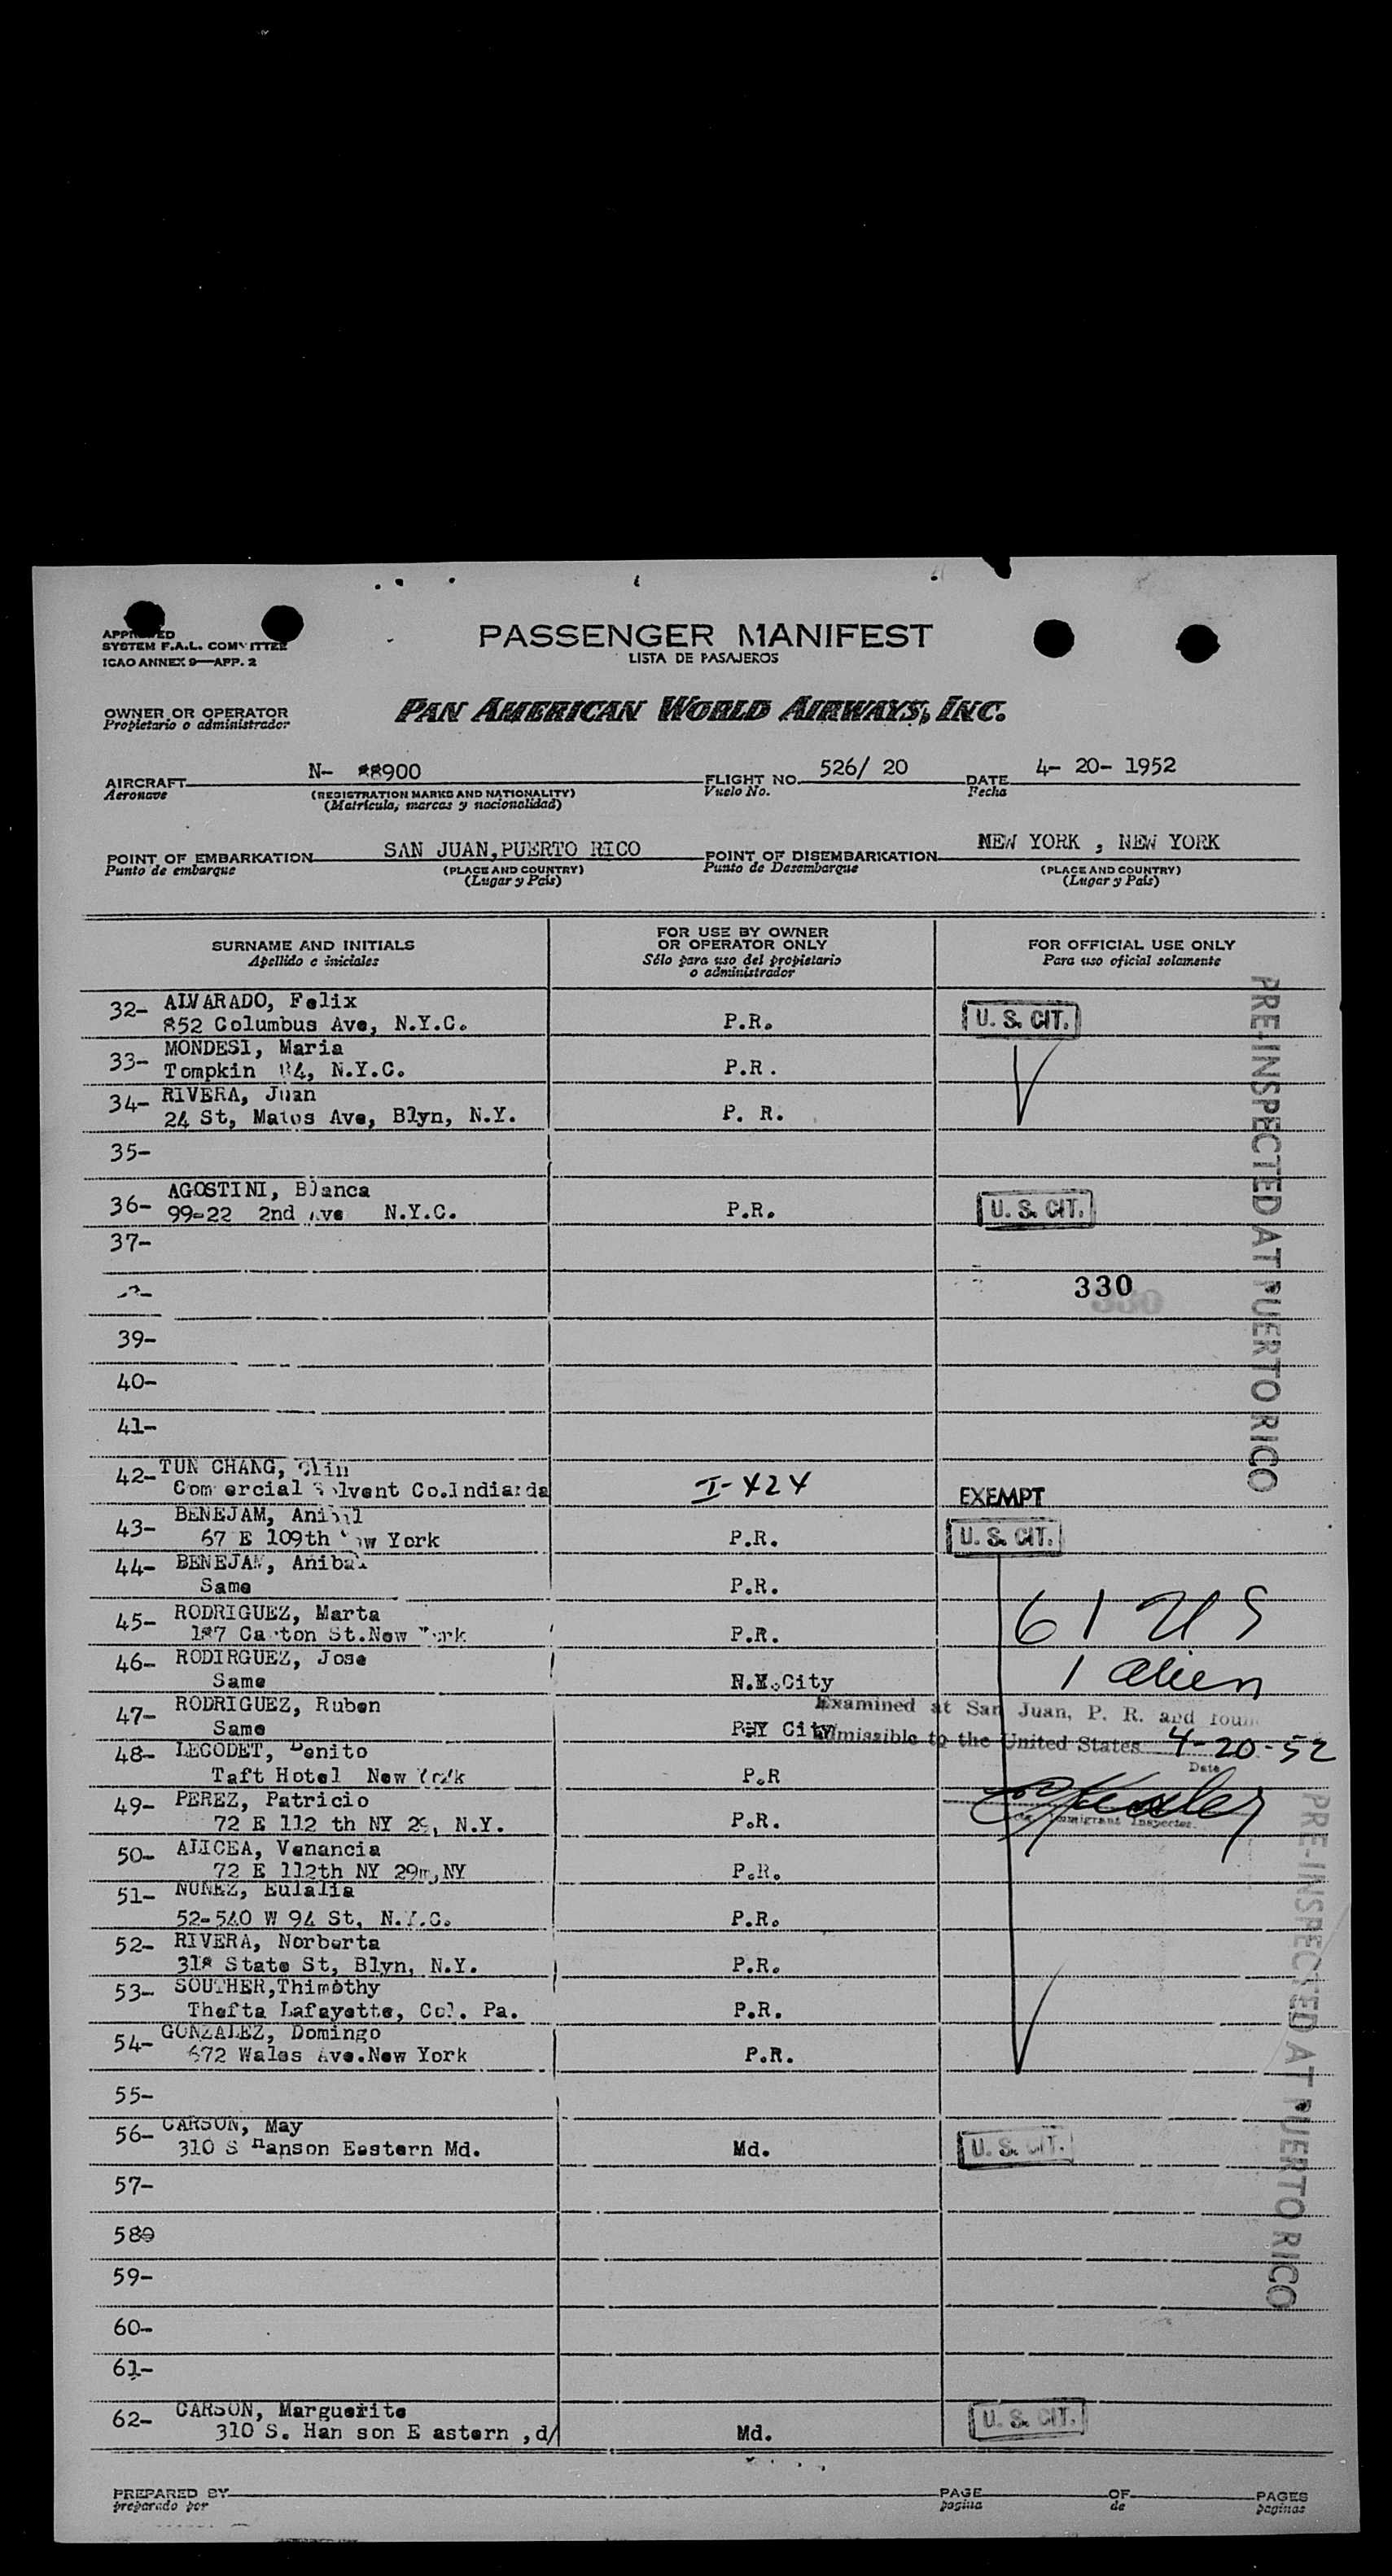 APPROVED
SYSTEM F.A.L. COMMITTEE
ICAO ANNEX 9—APP. 2
PASSENGER MANIFEST
LISTA DE PASAJEROS
OWNER OR OPERATOR
Propietario o administrador
PAN AMERICAN WORLD AIRWAYS, INC.
AIRCRAFT N- 88900 FLIGHT NO. 526/ 20 DATE 4- 20- 1952
Aeronave (REGISTRATION MARKS AND NATIONALITY) Vuelo No. Fecha
(Matrícula, marcas y nacionalidad)
POINT OF EMBARKATION SAN JUAN,PUERTO RICO POINT OF DISEMBARKATION NEW YORK , NEW YORK
Punto de embarque (PLACE AND COUNTRY) Punto de Desembarque (PLACE AND COUNTRY)
(Lugar y País) (Lugar y País)
SURNAME AND INITIALS FOR USE BY OWNER OR OPERATOR ONLY FOR OFFICIAL USE ONLY
Apellido e iniciales Sólo para uso del propietario o administrador Para uso oficial solamente
32- ALVARADO, Felix
852 Columbus Ave, N.Y.C. P.R. U. S. CIT.
33- MONDESI, Maria
Tompkin 84, N.Y.C. P.R.
34- RIVERA, Juan
24 St, Matos Ave, Blyn, N.Y. P. R.
35-
36- AGOSTINI, Blanca
99-22 2nd Ave N.Y.C. P.R. U. S. CIT.
37-
330
39-
40-
41-
42- TUN CHANG,
Commercial Solvent Co. I-424 EXEMPT
43- BENEJAM, Anibal
67 E 109th New York P.R. U. S. CIT.
44- BENEJAM, Anibal
Same P.R.
45- RODRIGUEZ, Marta 61 US
187 St.New York P.R.
46- RODIRGUEZ, Jose 1 alien
Same N.Y.City
47- RODRIGUEZ, Ruben Examined at San Juan, P. R. and found
Same City admissible to the United States 4-20-52
Date
48- LECODET, Benito
Taft Hotel New York P.R
49- PEREZ, Patricio
72 E 112 th NY 29, N.Y. P.R. Immigrant Inspector.
50- ALICEA, Venancia
72 E 112th NY 29m,NY P.R.
51- NUNEZ, Eulalia
52-540 W 94 St, N.Y.C. P.R.
52- RIVERA, Norberta
318 State St, Blyn, N.Y. P.R.
53- SOUTHER,Thimothy
Thefta Lafayette, Col. Pa. P.R.
54- GONZALEZ, Domingo
672 Wales Ave.New York P.R.
55-
56- CARSON, May
310 S Hanson Eastern Md. Md. U. S. CIT.
57-
58
59-
60-
61-
62- CARSON, Marguerite
310 S. Han son E astern ,d/ Md. U. S. CIT.
PRE-INSPECTED AT PUERTO RICO
PRE-INSPECTED AT PUERTO RICO
PREPARED BY PAGE OF PAGES
preparado por pagina de paginas